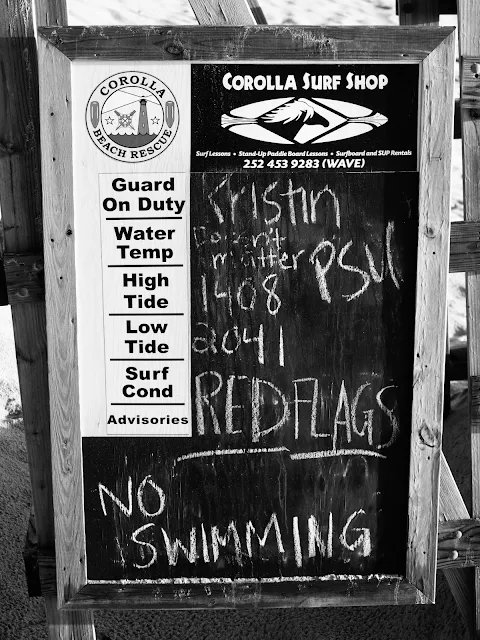 COROLLA
BEACH RESCUE
COROLLA SURF SHOP
Surf Lessons • Stand-Up Paddle Board Lessons • Surfboard and SUP Rentals
252 453 9283 (WAVE)
Guard
On Duty
Kristin
Water
Temp
Doesn't
matter
PSU
High
Tide
1408
Low
Tide
2041
Surf
Cond
RED FLAGS
Advisories
NO
SWIMMING